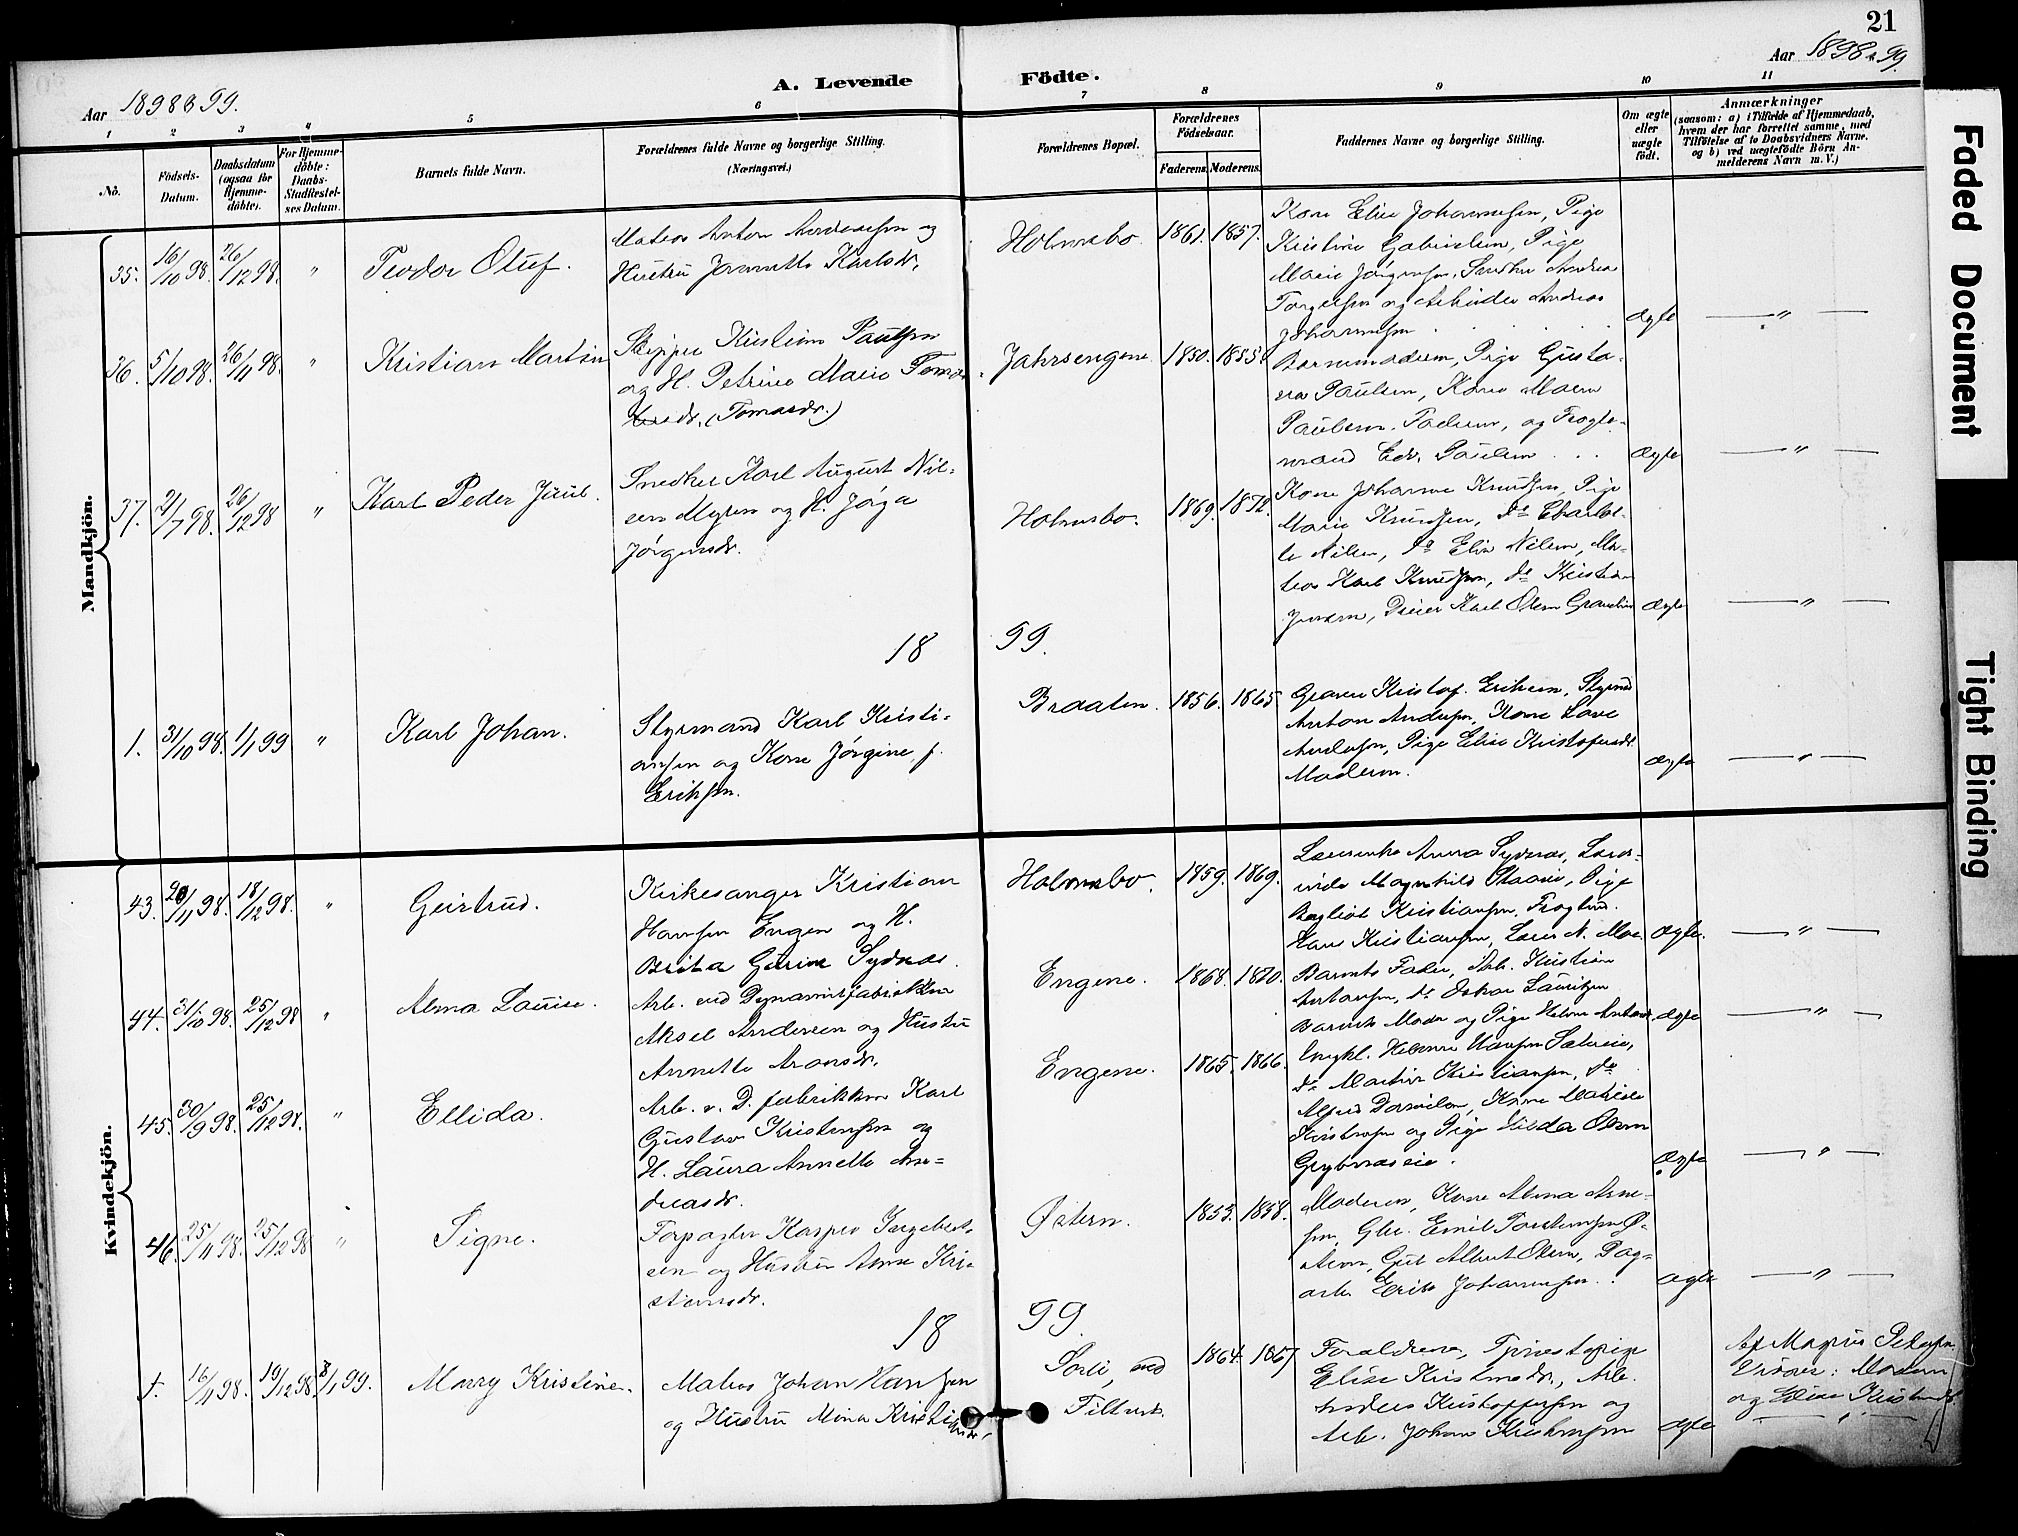 21
Aar 1898 & 99.
A. Levende Födte.
Aar 1898 & 99.
1 2 3 4 5 6 7 8 9 10 11
No.
Födsels-
Datum.
Daabsdatum
(ogsaa for
Hjemme-
döbte).
For Hjemme-
döbte:
Daabs-
Stadfæstel-
ses Datum.
Barnets fulde Navn.
Forældrenes fulde Navne og borgerlige Stilling.
(Næringsvei.)
Forældrenes Bopæl.
Forældrenes
Födselsaar.
Faderens. Moderens.
Faddernes Navne og borgerlige Stilling.
Om ægte
eller
uægte
født.
Anmærkninger
(saasom: a) i Tilfælde af Hjemmedaab,
hvem der har forrettet samme, med
Tilføielse af to Daabsvidners Navne.
og b) ved uægtefödte Börn An-
melderens Navn m. V.)
Mandkjön.
35. 16/10 98. 26/12 98. " Teodor Oluf.
Matros Anton Andreassen og
Hustru Jannette Karlsdr.
Holmsbo. 1861. 1857.
Kone Elise Johannesen, Pige
Kristine Gabrielsen, Pige
Marie Jörgensen, Snedker Andreas
Torgersen og Arbeider Andreas
Johannesen
ægte — " —
36. 5/10 98. 26/11 98. " Kristian Martin
Skipper Kristian Paulsen
og H. Petrine Marie Tomas-
dr. (Tomasdr.)
Jahrsengene 1850. 1855.
Barnemoderen, Pige Gusta-
va Paulsen, Kone Maren
Paulsen, Faderen, og Fragte-
mand Edv. Paulsen
ægte — " —
37. 21/7 98. 26/12 98 " Karl Peder Juul.
Snedker Karl August Nil-
sen Myren og H. Jörga
Jörgensdr.
Holmsbo. 1869. 1872.
Kone Johanne Knudsen, Pige
Marie Knudsen, do Charlot-
te Nilsen, do Elise Nilsen, Ma-
tros Karl Knudsen, do Kristian
Jensen, Dreier Karl Olsen
ægte — " —
18 99.
1. 31/10 98. 1/1 99 " Karl Johan.
Styrmand Karl Kristi-
ansen og Kone Jörgine f.
Eriksen.
Braaten. 1856. 1865
Kristof. Eriksen, Styrmd
Anton Andersen, Kone Lave
Andersen, Pige Elise Kristofersdr.
Moderen.
ægte — " —
Kvindekjön.
43. 20/11 98. 18/12 98. " Geirtrud.
Kirkesanger Kristian
Hansen Engen og H.
Brita Gurine Sydnæs.
Holmsbo. 1859. 1869.
Anna Sydnæs, Lærer-
inde Magnhild, Pige
Bergliot Kristiansen,
Hans Kristiansen, Lærer N. Moe.
ægte. — " —
44. 31/10 98. 25/12 98 " Alma Louise.
Arb. ved Dynamitfabrikken
Aksel Andersen og Hustru
Annette Aronsdr.
Engene. 1868. 1870.
Barnets Fader, Arb. Kristian
Antonsen, do Oskar Lauritzen
Barnets Moder og Pige Helene
ægte — " —
45. 30/9 98. 25/12 98. " Ellida.
Arb. v. D. fabrikken Karl
Gustav Kristensen og
H. Laura Annette An-
dreasdr.
Engene. 1865. 1866.
Ungkl. Hansen Sætreeie,
do Martin Kristiansen, do
Alfred Danielsen, Kone Mathilde
Kristensen og Pige Hilda Olsen
Grytnæseie.
ægte — " —
46. 25/11 98. 25/12 98 " Signe.
Forpagter Kasper Ingebret-
sen og Hustru Anne Kri-
stiansdr.
Östern. 1853. 1858.
Moderen, Kone Alma Arne-
sen, Gbr. Emil Torstensen Ö-
stern, Gut Albert Olsen, Dag-
arb. Erik Johannesen.
ægte — " —
18 99.
1. 16/11 98. 19/12 98 8/1 99. Marry Kristine.
Matros Johan Hansen
og Hustru Mina Kristi-
ansdr.
ved
Tilbust. 1864. 1867
Forældrene, Tjenestepige
Elise Kristensdr., Arb.
Anders Kristoffersen og
Arb. Johan Kristensen
ægte
Af Magnus Petersen
Vidner: Moderen
og Elise Kristensdr.
— " —
Faded Document
Tight Binding